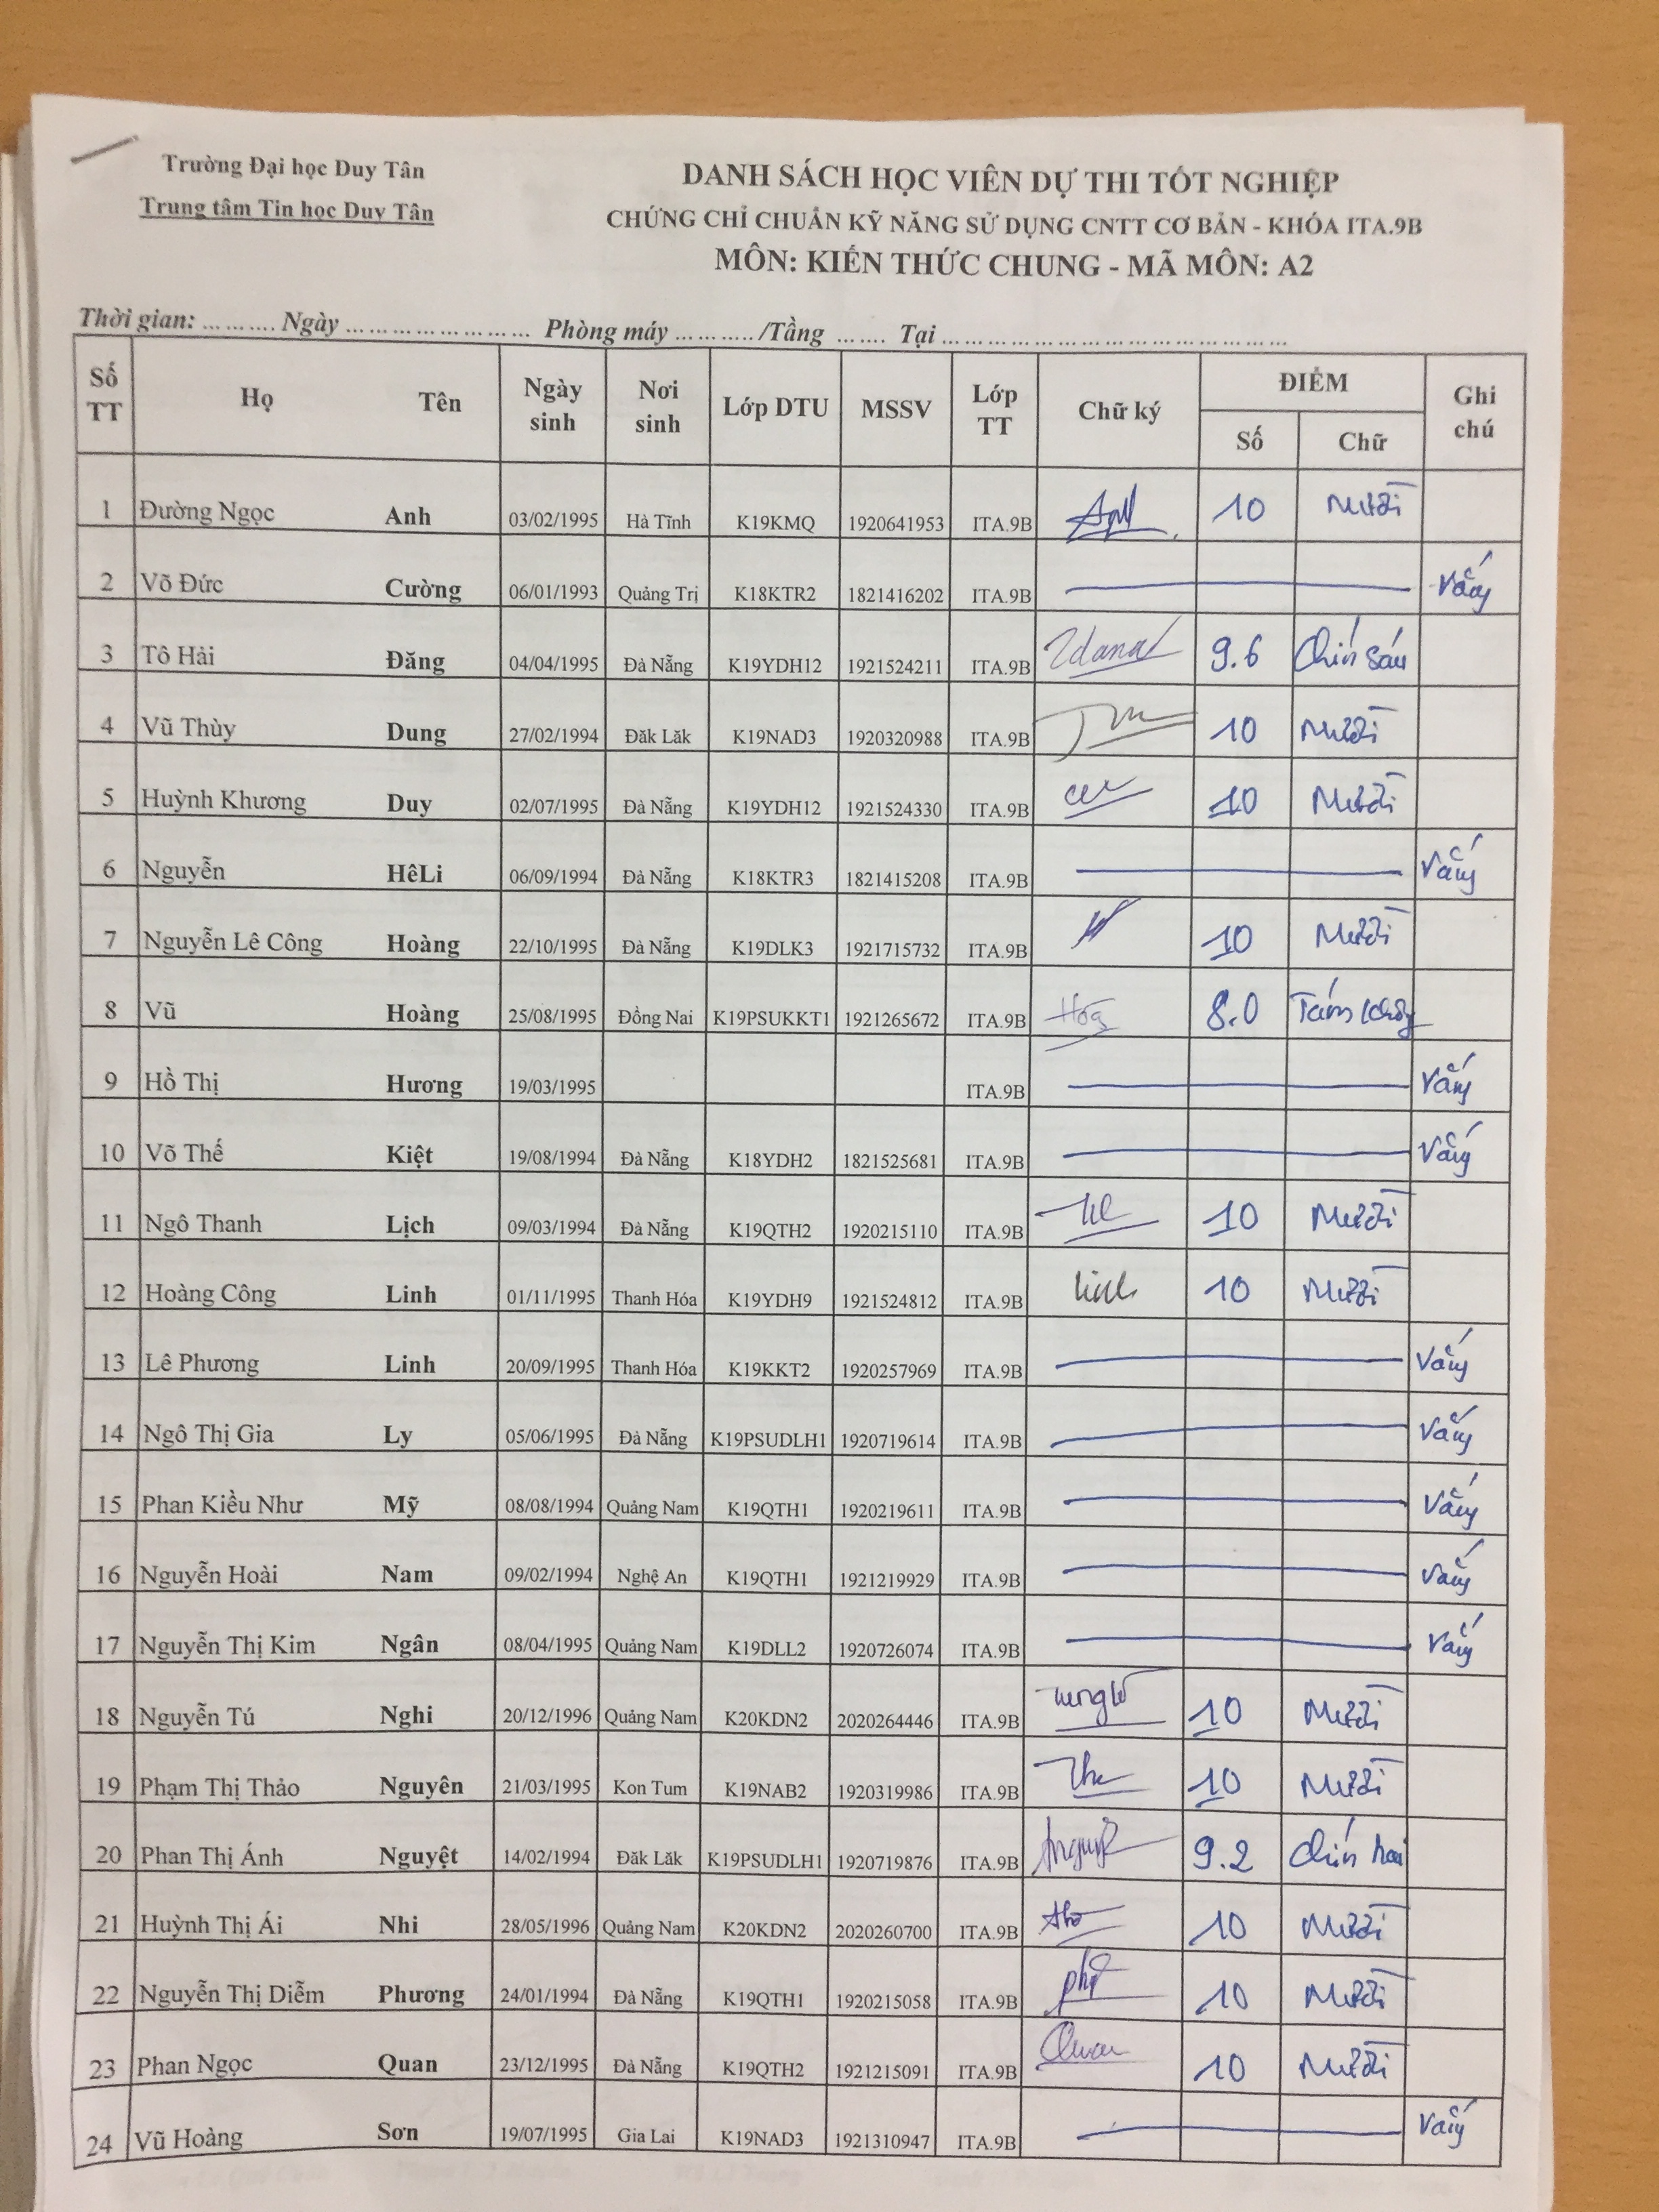 Trường Đại học Duy Tân
Trung tâm Tin học Duy Tân
DANH SÁCH HỌC VIÊN DỰ THI TỐT NGHIỆP
CHỨNG CHỈ CHUẨN KỸ NĂNG SỬ DỤNG CNTT CƠ BẢN - KHÓA ITA.9B
MÔN: KIẾN THỨC CHUNG - MÃ MÔN: A2
Thời gian: ... ... .... Ngày ... ... ... ... ... ... ... ... Phòng máy ... ... .... /Tầng ... .... Tại ... ... ... ... ... ... ... ... ... ... ... ... ... ... ...
Số TT Họ Tên Ngày sinh Nơi sinh Lớp DTU MSSV Lớp TT Chữ ký ĐIỂM Số Chữ Ghi chú
1 Đường Ngọc Anh 03/02/1995 Hà Tĩnh K19KMQ 1920641953 ITA.9B 10 Mười
2 Võ Đức Cường 06/01/1993 Quảng Trị K18KTR2 1821416202 ITA.9B Vắng
3 Tô Hải Đăng 04/04/1995 Đà Nẵng K19YDH12 1921524211 ITA.9B 9.6 Chín sáu
4 Vũ Thùy Dung 27/02/1994 Đăk Lăk K19NAD3 1920320988 ITA.9B 10 Mười
5 Huỳnh Khương Duy 02/07/1995 Đà Nẵng K19YDH12 1921524330 ITA.9B 10 Mười
6 Nguyễn HêLi 06/09/1994 Đà Nẵng K18KTR3 1821415208 ITA.9B Vắng
7 Nguyễn Lê Công Hoàng 22/10/1995 Đà Nẵng K19DLK3 1921715732 ITA.9B 10 Mười
8 Vũ Hoàng 25/08/1995 Đồng Nai K19PSUKKT1 1921265672 ITA.9B 8.0 Tám không
9 Hồ Thị Hương 19/03/1995 ITA.9B Vắng
10 Võ Thế Kiệt 19/08/1994 Đà Nẵng K18YDH2 1821525681 ITA.9B Vắng
11 Ngô Thanh Lịch 09/03/1994 Đà Nẵng K19QTH2 1920215110 ITA.9B 10 Mười
12 Hoàng Công Linh 01/11/1995 Thanh Hóa K19YDH9 1921524812 ITA.9B Linh 10 Mười
13 Lê Phương Linh 20/09/1995 Thanh Hóa K19KKT2 1920257969 ITA.9B Vắng
14 Ngô Thị Gia Ly 05/06/1995 Đà Nẵng K19PSUDLH1 1920719614 ITA.9B Vắng
15 Phan Kiều Như Mỹ 08/08/1994 Quảng Nam K19QTH1 1920219611 ITA.9B Vắng
16 Nguyễn Hoài Nam 09/02/1994 Nghệ An K19QTH1 1921219929 ITA.9B Vắng
17 Nguyễn Thị Kim Ngân 08/04/1995 Quảng Nam K19DLL2 1920726074 ITA.9B Vắng
18 Nguyễn Tú Nghi 20/12/1996 Quảng Nam K20KDN2 2020264446 ITA.9B 10 Mười
19 Phạm Thị Thảo Nguyên 21/03/1995 Kon Tum K19NAB2 1920319986 ITA.9B 10 Mười
20 Phan Thị Ánh Nguyệt 14/02/1994 Đăk Lăk K19PSUDLH1 1920719876 ITA.9B 9.2 Chín hai
21 Huỳnh Thị Ái Nhi 28/05/1996 Quảng Nam K20KDN2 2020260700 ITA.9B 10 Mười
22 Nguyễn Thị Diễm Phương 24/01/1994 Đà Nẵng K19QTH1 1920215058 ITA.9B 10 Mười
23 Phan Ngọc Quan 23/12/1995 Đà Nẵng K19QTH2 1921215091 ITA.9B Quan 10 Mười
24 Vũ Hoàng Sơn 19/07/1995 Gia Lai K19NAD3 1921310947 ITA.9B Vắng